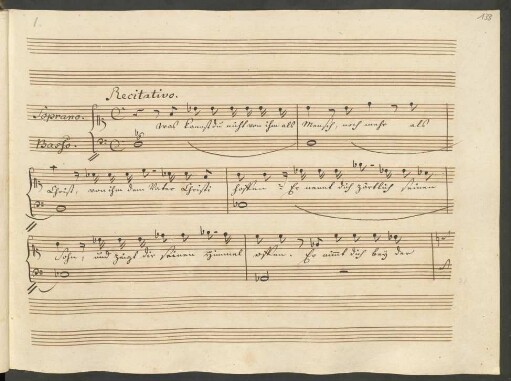 1.
138
Recitativo.
Soprano.
Was kannst du nicht von ihm als Mensch, noch mehr als
Basso.
Christ, von ihm dem Vater Christi hoffen? Er nennt dich zärtlich seinen
Sohn, und zeigt dir seinen Himmel offen. Er nimmt dich bey der